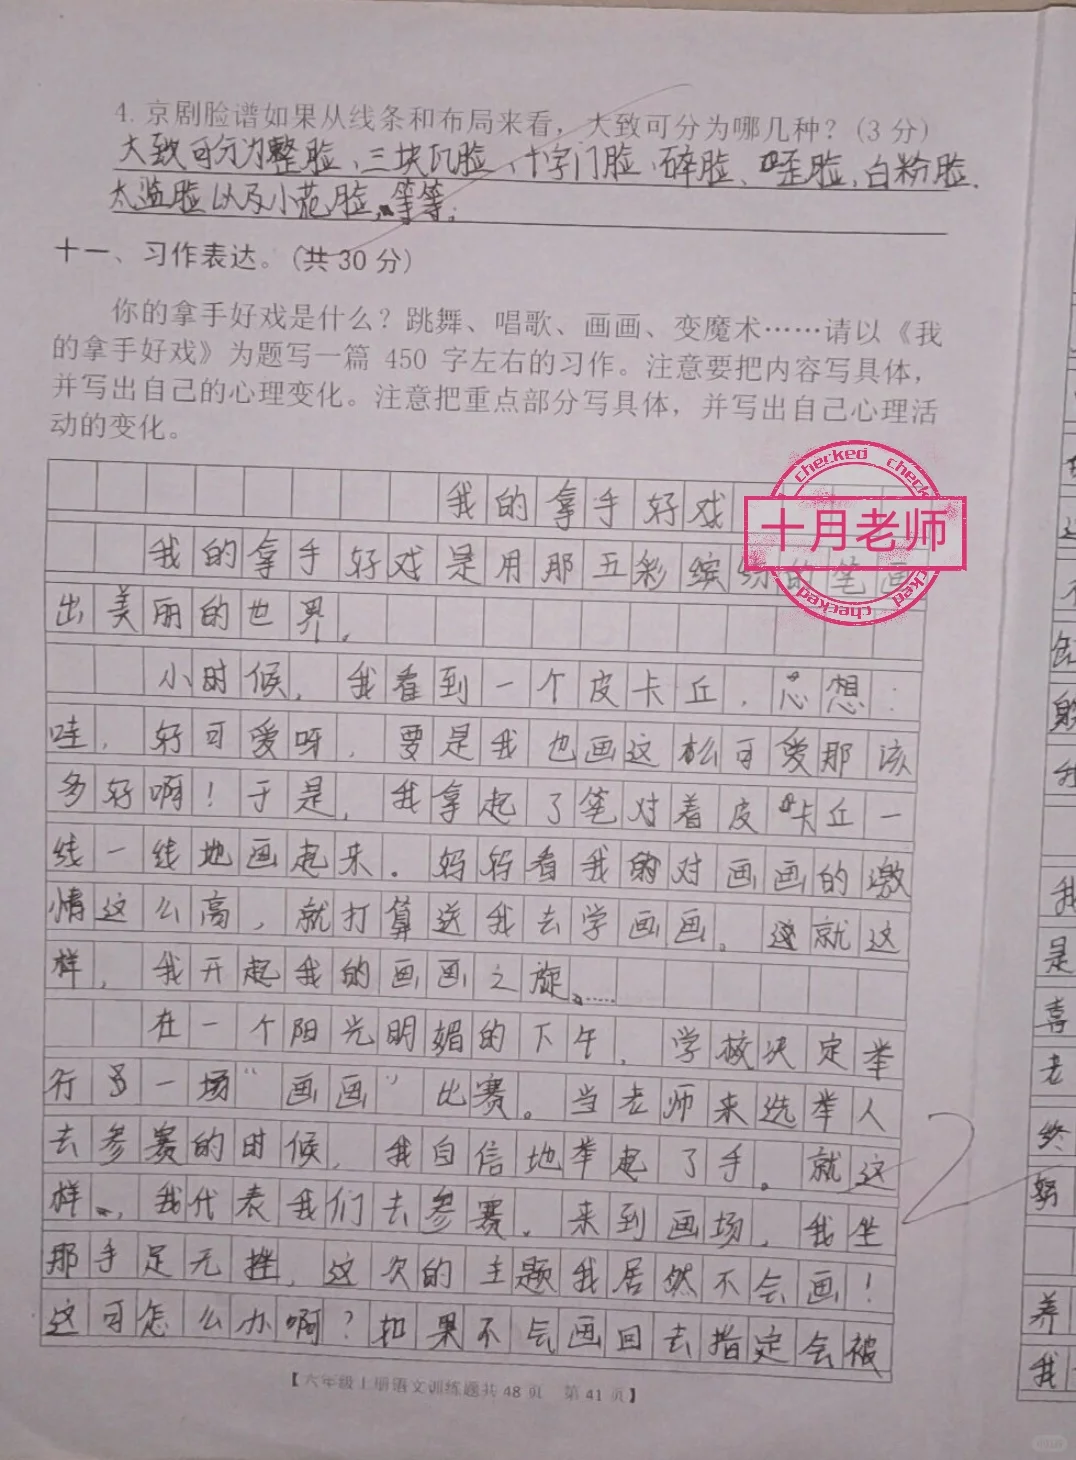 4. 京剧脸谱如果从线条和布局来看，大致可分为哪几种？(3 分)
大致可分为整脸、三块瓦脸、十字门脸、碎脸、歪脸、白粉脸、
太监脸以及小花脸，等等；
十一、习作表达。(共 30 分)
你的拿手好戏是什么？跳舞、唱歌、画画、变魔术……请以《我
的拿手好戏》为题写一篇 450 字左右的习作。注意要把内容写具体，
并写出自己的心理变化。注意把重点部分写具体，并写出自己心理活
动的变化。
checked checked
十月老师
checked checked
我的拿手好戏
我的拿手好戏是用那五彩缤纷的笔画
出美丽的世界，
小时候，我看到一个皮卡丘，心想：
哇，好可爱呀，要是我也画这松可爱那该
多好啊！于是，我拿起了笔对着皮卡丘一
线一线地画起来。妈妈看我对画画的激
情这么高，就打算送我去学画画。就这
样，我开起我的画画之旋……
在一个阳光明媚的下午，学校决定举
行一场“画画”比赛。当老师来选举人
去参赛的时候，我自信地举起了手。就这
样，我代表我们去参赛，来到画场，我坐
那手足无挫，这次的主题我居然不会画！
这可怎么办啊？如果不会画回去指定会被
2
【六年级上册语文训练题共 48 页 第 41 页】